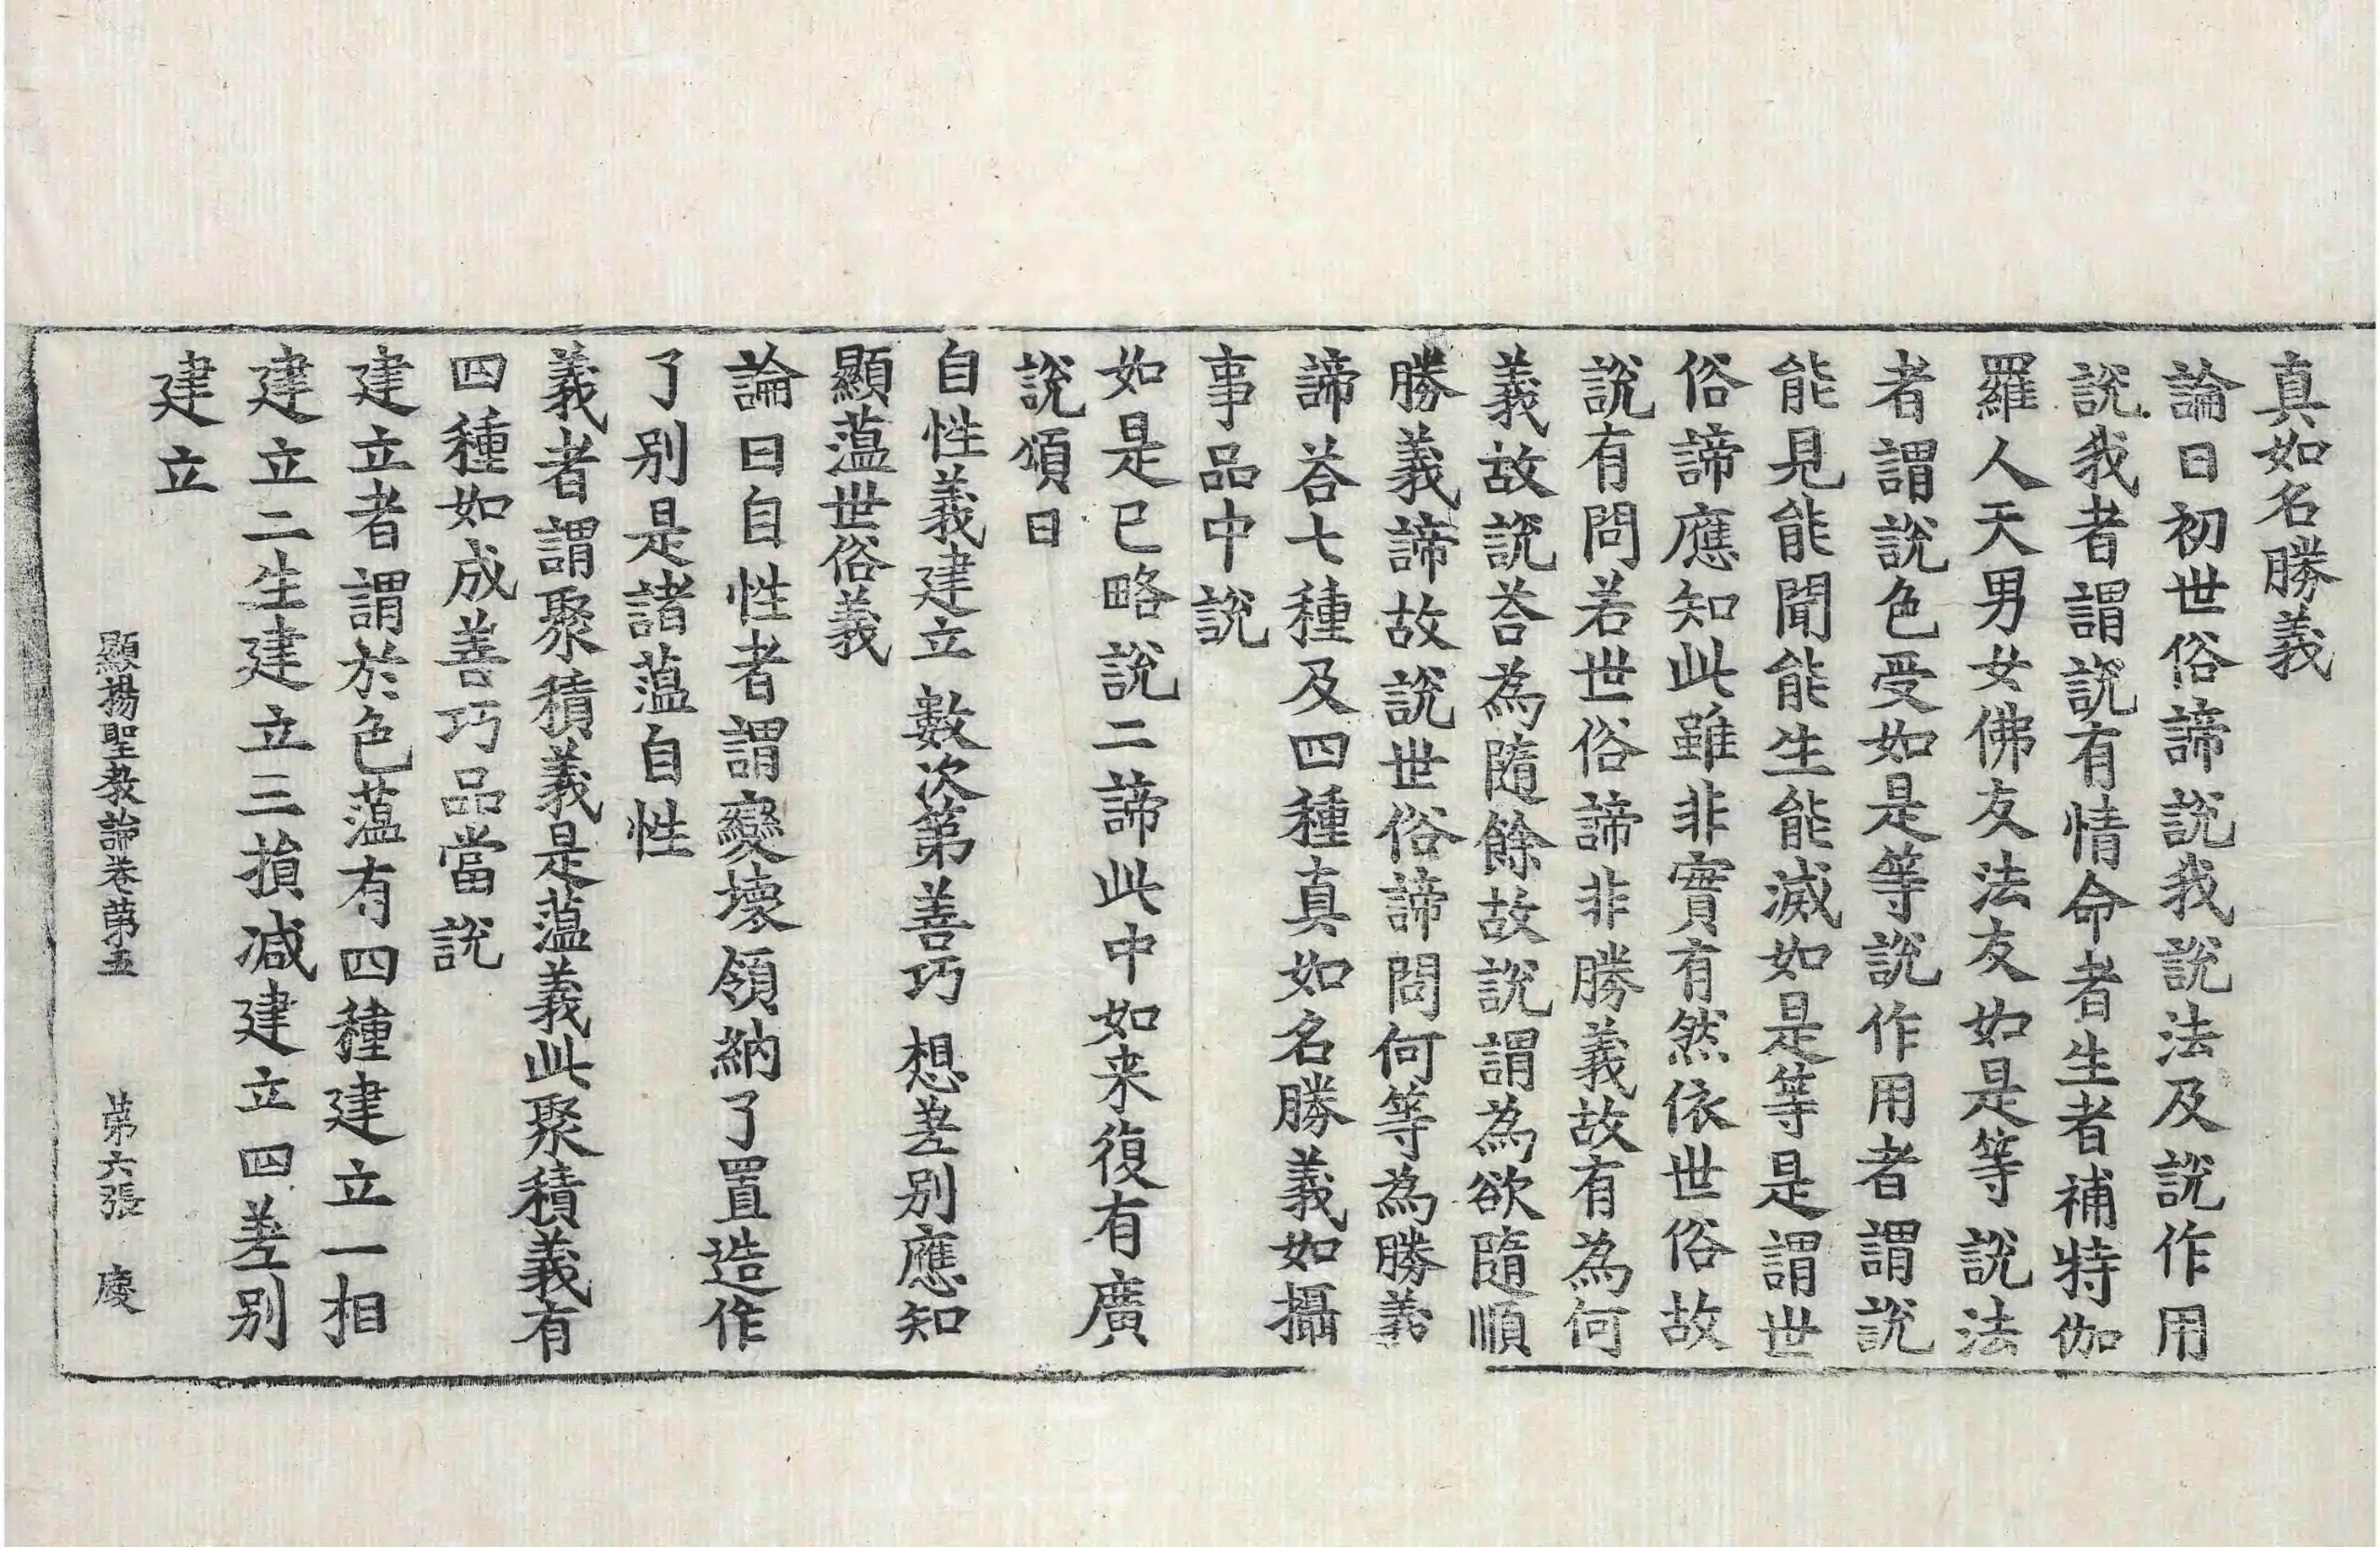 真如名勝義
論曰初世俗諦說我說法及說作用
說我者謂說有情命者生者補特伽
羅人天男女佛友法友如是等說法
者謂說色受如是等說作用者謂說
能見能聞能生能滅如是等是謂世
俗諦應知此雖非實有然依世俗故
說有問若世俗諦非勝義故有為何
義故說荅為隨餘故說謂為欲隨順
勝義諦故說世俗諦問何等為勝義
諦荅七種及四種真如名勝義如攝
事品中說
如是已略說二諦此中如来復有廣
說頌曰
自性義建立 數次第善巧 想差别應知
顯薀世俗義
論曰自性者謂變壞領納了置造作
了别是諸薀自性
義者謂聚積義是薀義此聚積義有
四種如成善巧品當說
建立者謂於色薀有四種建立一相
建立二生建立三損减建立四差别
建立
顯揚聖教論卷第五 第六張 慶